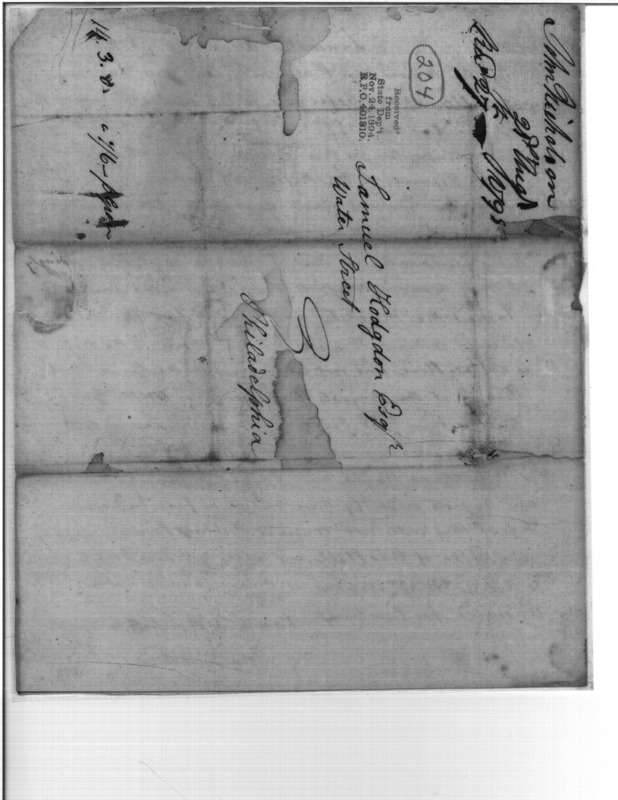 John Nicholson
21st Augt
Recd 27th 1795
204
Received
from
State Dep't
Nov. 24, 1904.
R.P.O. 401810.
Samuel Hodgdon Esqr
Water Street
Philadelphia
14. 3. 21